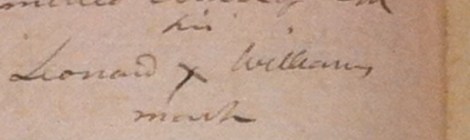 his
Leonard x Williams
mark